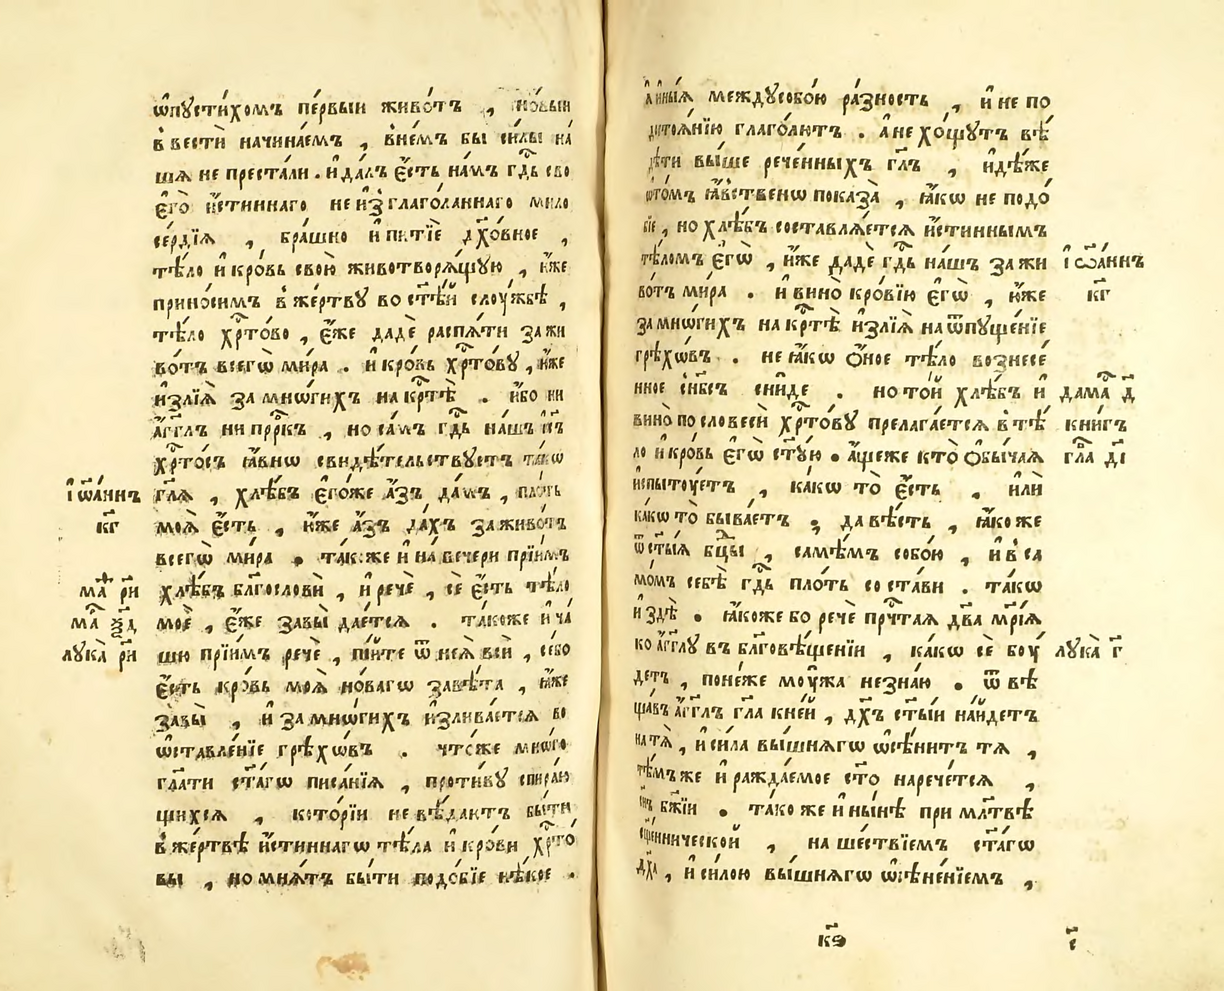 ѿпꙋсти́хомъ пе́рвыи живо́тъ , но́выи
в̾вестѝ начина́емъ , внє́мъ бы си́лы на́
шꙗ не преста́ли . и҆ да́лъ є҆́сть на́мъ гд҇ь сво
є҆го̀ и҆́стиннаго неи҆зглаго́ланнаго мило
се́рдїꙗ , бра́шно и҆ питїѐ дх҃о́вное ,
тѣ́ло и҆ кро́вь свою̀ животворѧ́щꙋю , ꙗ҆́же
прино́симъ в̾же́ртвꙋ во ст҃ѣ́й слоу́жбѣ ,
тѣ́ло хрⷭ҇то́во , є҆́же дадѐ распѧ́ти за жи
во́тъ всегѡ̀ ми́ра . и҆ кро́вь хрⷭ҇то́вꙋ , ю҆́же
и҆злїѧ̀ за мнѡ́гихъ на крⷭ҇тѣ̀ . и҆́бо ни
а҆́гг҃лъ ни прⷪ҇ркъ , но са́мъ гд҇ь на́шъ і҆с҃ъ
хрⷭ҇то́съ ꙗ҆́внѡ свидѣ́тельствꙋетъ та́кѡ
і҆ѡа́ннъ
гл҃ѧ , хлѣ́бъ є҆го́же а҆́зъ да́мъ , пло́ть
к҃г
моѧ̀ є҆́сть , ю҆́же а҆́зъ да́хъ за живо́тъ
всегѡ̀ ми́ра . та́коже и҆ на ве́чери прїи́мъ
ма҃ ри
хлѣ́бъ бл҃гословѝ , и҆ речѐ , сѐ є҆́сть тѣ́ло
ма҃ ѯ҃д
моѐ , є҆́же за вы̀ дае́тсѧ . та́коже и҆ ча́
лꙋка̀ ри
шꙋ прїи́мъ речѐ , пі́ите ѿ неѧ̀ вси̑ , се́бо
є҆́сть кро́вь моѧ̀ но́вагѡ завѣ́та , ꙗ҆́же
за вы̀ , и҆ за мнѡ́гихъ и҆злива́етсѧ во
ѡ҆ставле́нїе грѣхѡ́въ . что́же мно́го
гл҃ати ст҃а́гѡ писа́нїѧ , проти́вꙋ спира́ю
щихсѧ , кото́рїи не вѣ́даютъ бы́ти
в̾же́ртвѣ и҆́стиннагѡ тѣ́ла и҆ кро́ви хрⷭ҇то́
вы , но мнѧ́тъ бы́ти подо́бїе нѣ́кое .
междꙋсобо́ю ра́зность , и҆ не по
глаго́лютъ . а҆ не хо́щꙋтъ вѣ́
дѣти вы́ше рече́нныхъ гл҃ъ , и҆дѣ́же
ѡ҆то́мъ ꙗ҆́вственѡ показа̀ , ꙗ҆́кѡ не подо́
бїе , но хлѣ́бъ составлѧ́етсѧ и҆́стиннымъ
тѣ́ломъ є҆гѡ̀ , є҆́же дадѐ гд҇ь на́шъ за жи
і҆ѡа́ннъ
во́тъ ми́ра . и҆ вино̀ кро́вїю є҆гѡ̀ , ю҆́же
к҃г
за мнѡ́гихъ на крⷭ҇тѣ̀ и҆злїѧ̀ на ѿпꙋще́нїе
грѣхѡ́въ . не ꙗ҆́кѡ ѻ҆́ное тѣ́ло вознесе́
нное с̾нб҃съ сни́де . но то́й хлѣ́бъ и҆
дама́ д҃
вино̀ по словесѝ хрⷭ҇то́вꙋ прелага́етсѧ в̾тѣ́
кни́гъ
ло и҆ кро́вь є҆гѡ̀ ст҃ꙋ́ю . а҆́щеже кто̀ ѻ҆бы́чаѧ
гла҃ д҃і
и҆спытꙋ́етъ , ка́кѡ то̀ є҆́сть . и҆лѝ
ка́кѡ то̀ быва́етъ ; да вѣ́сть , ꙗ҆́коже
ѿ ст҃ы́ѧ бц҃ы , самѣ́мъ собо́ю , и҆ в̾са
мо́мъ себѣ̀ гд҇ь пло́ть соста́ви . та́кѡ
и҆ здѣ̀ . ꙗ҆́коже бо речѐ прчⷭ҇таѧ дв҃а мр҃і́ѧ
ко а҆́гг҃лꙋ въ бл҃говѣ́щенїи , ка́кѡ сѐ боу́
лꙋка̀ г҃
детъ , поне́же мꙋ́жа незна́ю . ѿ вѣ
ща́въ а҆́гг҃лъ гл҃а к̾не́й , дх҃ъ ст҃ы́й на́йдетъ
на тѧ̀ , и҆ си́ла вы́шнѧгѡ ѡ҆сѣни́тъ тѧ ,
тѣ́мъже и҆ ражда́емое ст҃о наречє́тсѧ ,
сн҃ъ бж҃їи . та́коже и҆ ны́нѣ при мл҃твѣ
сщ҃е́ннической , наше́ствїемъ ст҃а́гѡ
дх҃а , и҆ си́лою вы́шнѧгѡ ѡ҆сѣне́нїемъ ,
к҃ѳ
і҃